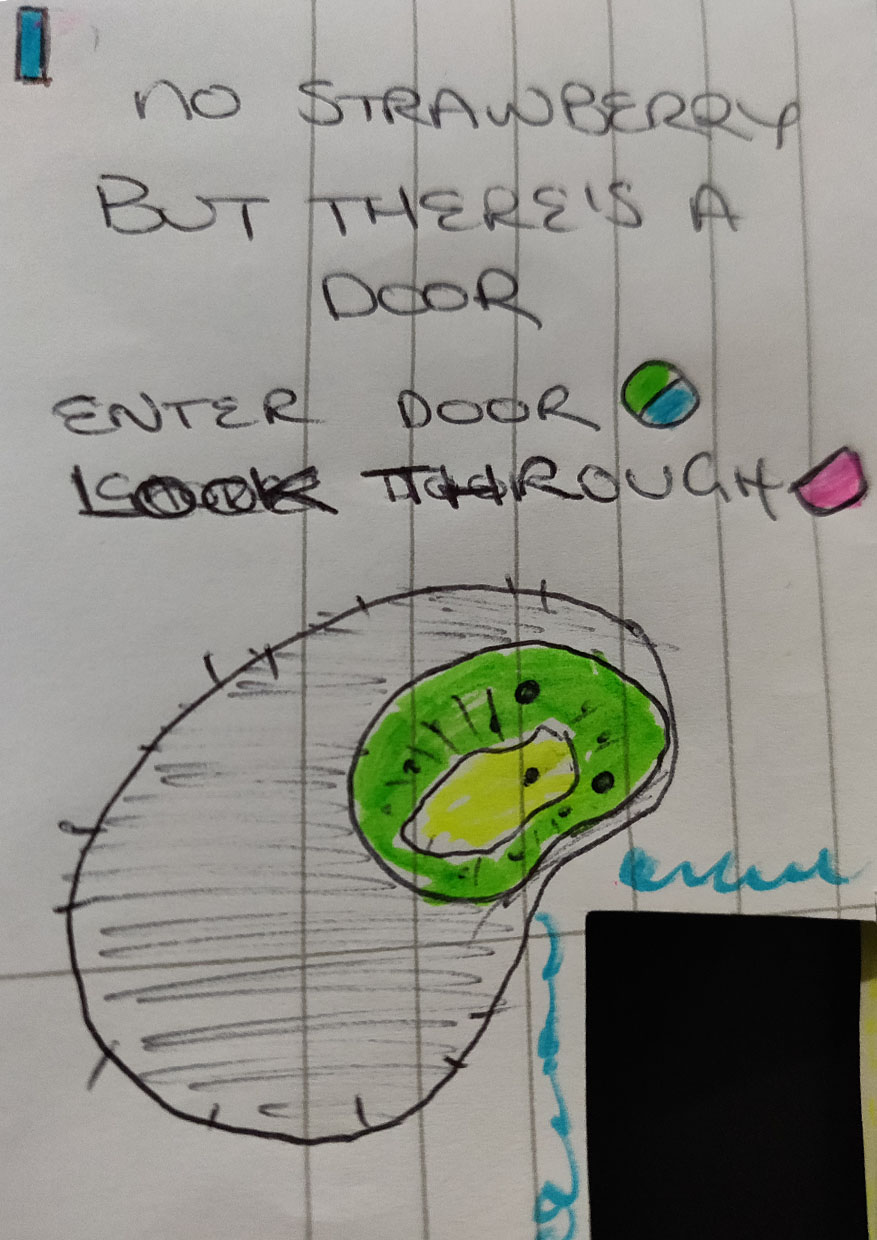 NO STRAWBERRY
BUT THERE'S A
DOOR
ENTER DOOR
LOOK THROUGH